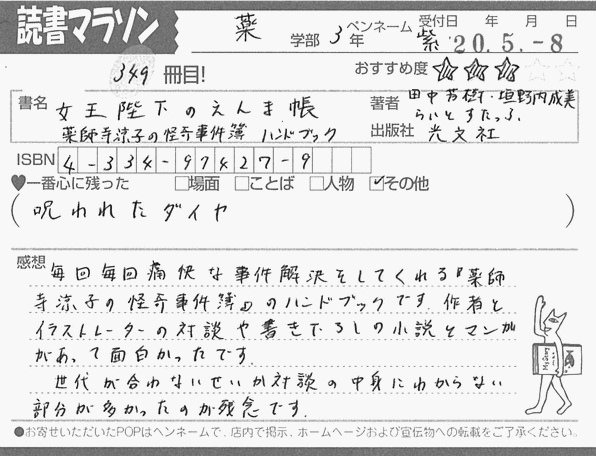 読書マラソン
薬 学部 3年 ペンネーム 紫 受付日 年 月 日
20.5.-8
349 冊目!
おすすめ度 ★★★☆☆
書名 女王陛下のえんま帳
薬師寺涼子の怪奇事件簿 ハンドブック
著者 田中芳樹・垣野内成美
らいとすたっふ
出版社 光文社
ISBN 4-334-97427-9
♥一番心に残った □場面 □ことば □人物 ☑その他
(呪われたダイヤ)
感想 毎回毎回痛快な事件解決をしてくれる『薬師
寺涼子の怪奇事件簿』のハンドブックです。作者と
イラストレーターの対談や書き下ろしの小説とマンガ
があって面白かったです。
世代が合わないせいか対談の中身にわからない
部分が多かったのが残念です。
●お寄せいただいたPOPはペンネームで、店内で掲示、ホームページおよび宣伝物への転載をご了承ください。